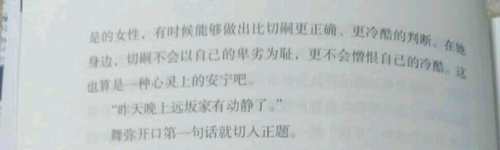 是的女性，有时候能够做出比切嗣更正确、更冷酷的判断。在她
身边，切嗣不会以自己的卑劣为耻，更不会憎恨自己的冷酷。这
也算是一种心灵上的安宁吧。
“昨天晚上远坂家有动静了。”
舞弥开口第一句话就切入正题。